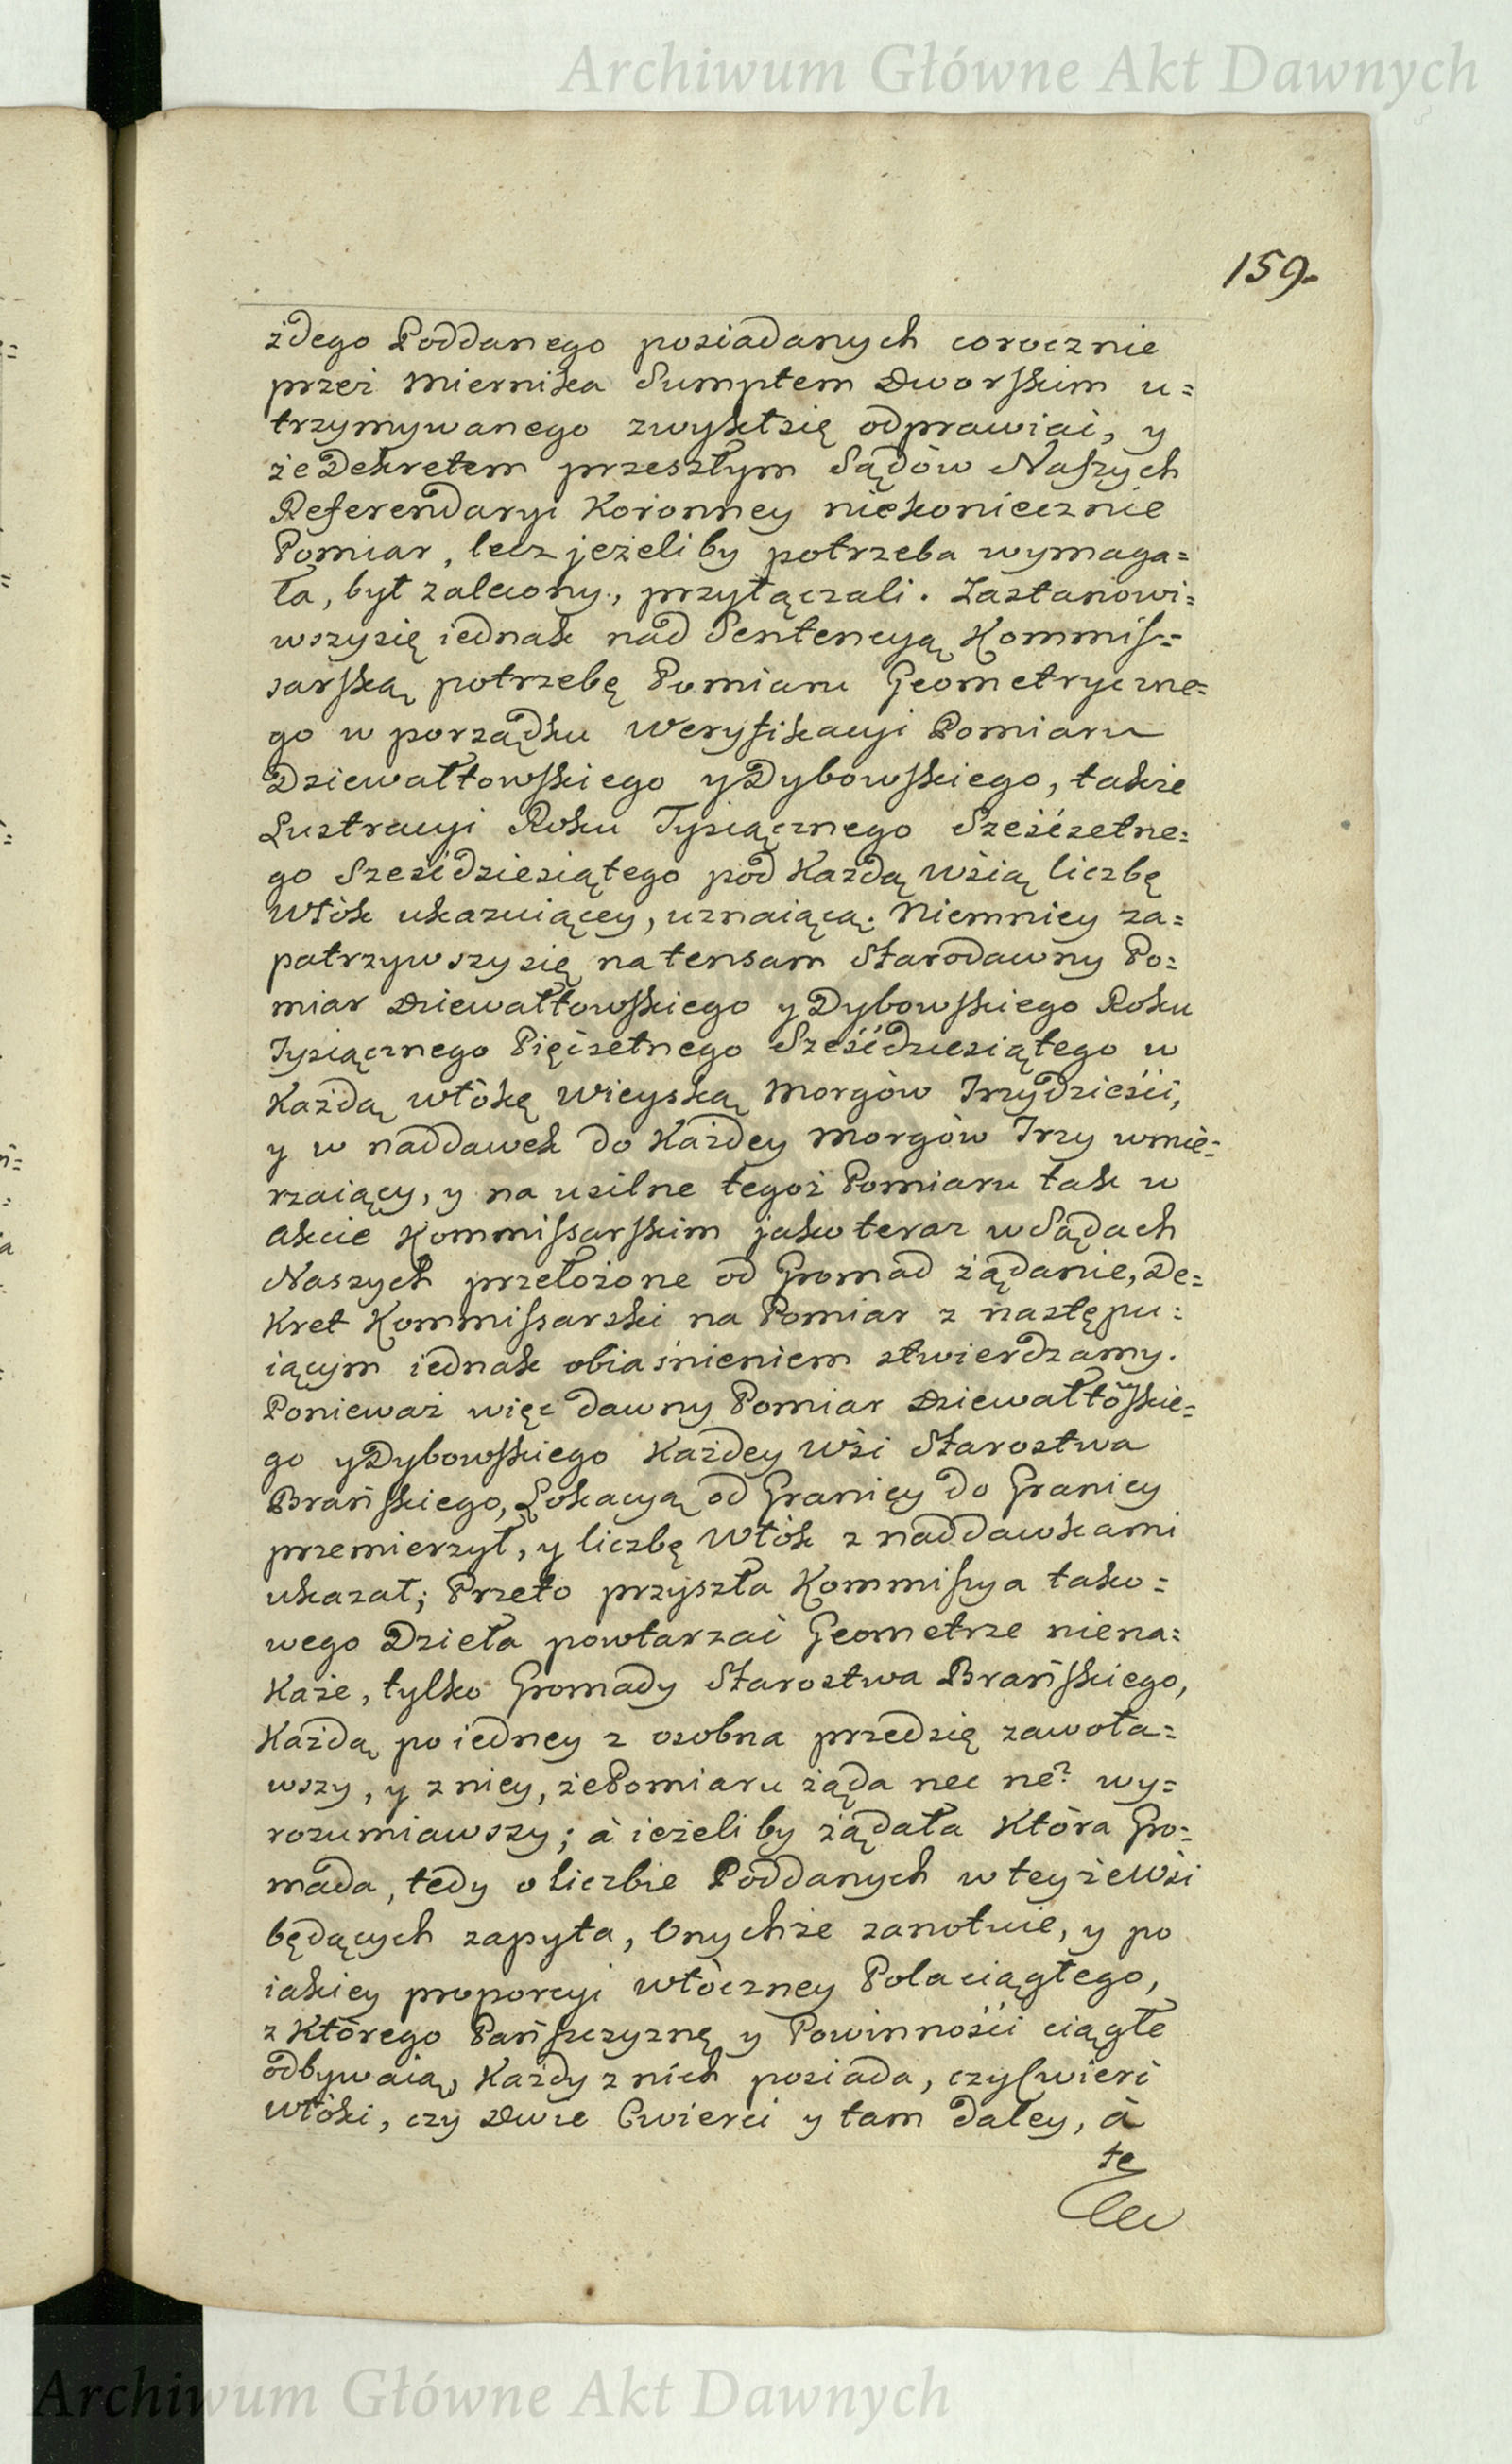 Archiwum Główne Akt Dawnych
159.
żdego Poddanego posiadanych corocznie
przez Miernika Sumptem Dworskim u=
trzymywanego zwykł się odprawiać, y
że Dekretem przeszłym Sądów Naszych
Referendaryi Koronney niekoniecznie
Pomiar, lecz jeżeliby potrzeba wymaga=
ła, był zalecony, przyłączali. Zastanowi=
wszysię iednak nad Sentencyą Kommis=
sarską potrzebę Pomiaru Geometryczne=
go w porządku Weryfikacyi Pomiaru
Dziewałtowskiego y Dybowskiego, także
Lustracyi Roku Tysiącznego Sześćsetne=
go Sześćdziesiątego pod Każdą Wsią liczbę
Włók ukazuiącey, uznaiącą. Niemniey za=
patrzywszysię na tensam Starodawny Po=
miar Dziewałtowskiego y Dybowskiego Roku
Tysiącznego Pięćsetnego Sześćdziesiątego w
Każdą włókę Wieyską Morgów Trzydzieści,
y w naddawek do Każdey Morgów Trzy wmie=
rzaiący, y na usilne tegoż Pomiaru tak w
Akcie Kommissarskim jako teraz w Sądach
Naszych przełożone od Gromad żądanie, De=
Kret Kommissarski na Pomiar z następu=
iącym iednak obiaśnieniem stwierdzamy.
Ponieważ więc dawny Pomiar Dziewałtoskie=
go y Dybowskiego Każdey Wsi Starostwa
Brańskiego, Lokacyą od Granicy do Granicy
przemierzył, y liczbę Włók z naddawkami
ukazał; Przeto przyszła Kommissya tako=
wego Dzieła powtarzać Geometrze niena=
Każe, tylko Gromady Starostwa Brańskiego,
Każdą po iedney z osobna przedsię zawoła=
wszy, y z niey, że Pomiaru żąda nec ne? wy=
rozumiawszy; à ieżeliby żądała Która Gro=
mada, tedy o liczbie Poddanych w teyże Wsi
będących zapyta, Onychże zanotuie, y po
iakiey proporcyi włóczney Pola ciągłego,
z Którego Pańszczyznę y Powinności ciągłe
odbywaią, Każdy z nich posiada, czy Cwierć
Włóki, czy Dwie Cwierci y tam daley, à
te
Archiwum Główne Akt Dawnych